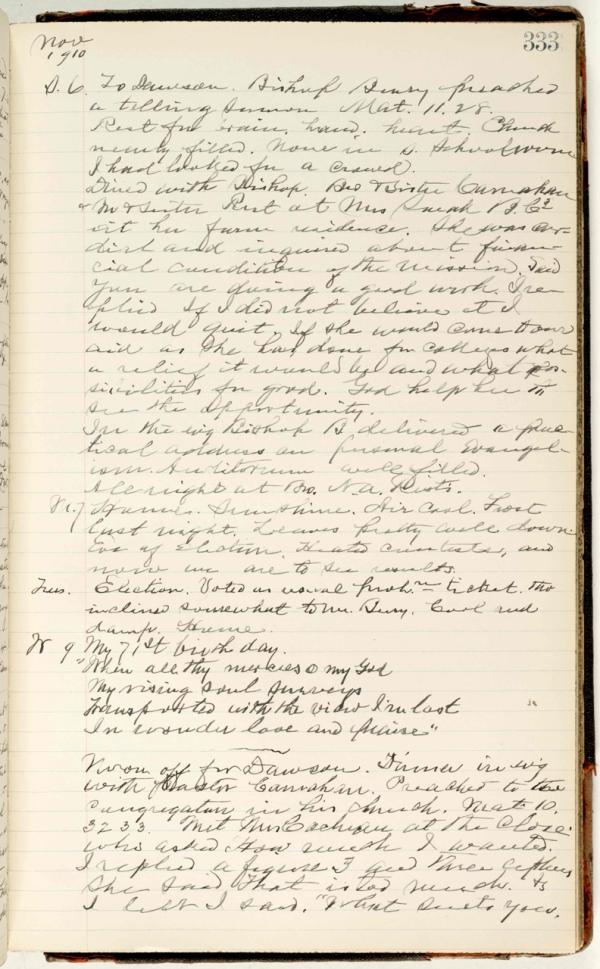 Nov
1910
333
S. 6. To Dawson. Bishop Berry preached
a telling sermon Mat. 11.28.
Rest for brain, hand, heart. Church
nearly filled. None in s. school room
I had looked for a crowd.
Dined with Bishop. Bro & Sister Carnahan
& Mr & Sister Rist at Mrs Sarah B. C's
at her farm residence. She was cor-
dial and inquired about finan-
cial condition of the Mission. Said
You are doing a good work. I re-
plied If I did not believe it I
would quit. If she would come to our
aid as she has done for colleges what
a relief it would be and what pos-
sibilities for good. God help her to
see the opportunity.
In the evg Bishop B delivered a prac-
tical address on personal evangel-
ism. Auditorium well filled.
All night at Bro. N.A. Rists.
M. 7 Home. Sunshine. Air cool. Frost
last night. Leaves pretty well down.
Eve of Election. Heated contests, and
now we are to see results.
Tues. Election. Voted as usual proh.n ticket. tho
inclined somewhat to Mr. Berry. Cool and
damp. Home.
W 9 My 71st birth day.
"When all thy mercies O my God
My rising soul surveys
Transported with the view I'm lost
In wonder love and praise"
Noon off for Dawson. Dinner in evg
with Pastor Carnahan. Preached to the
congregation in his church. Mat 10.
32 33. Met Mrs Cochran at the close
who asked How much I wanted.
I replied a figure 3 and three ciphers
She said That is too much. As
I left I said. "What suits you.